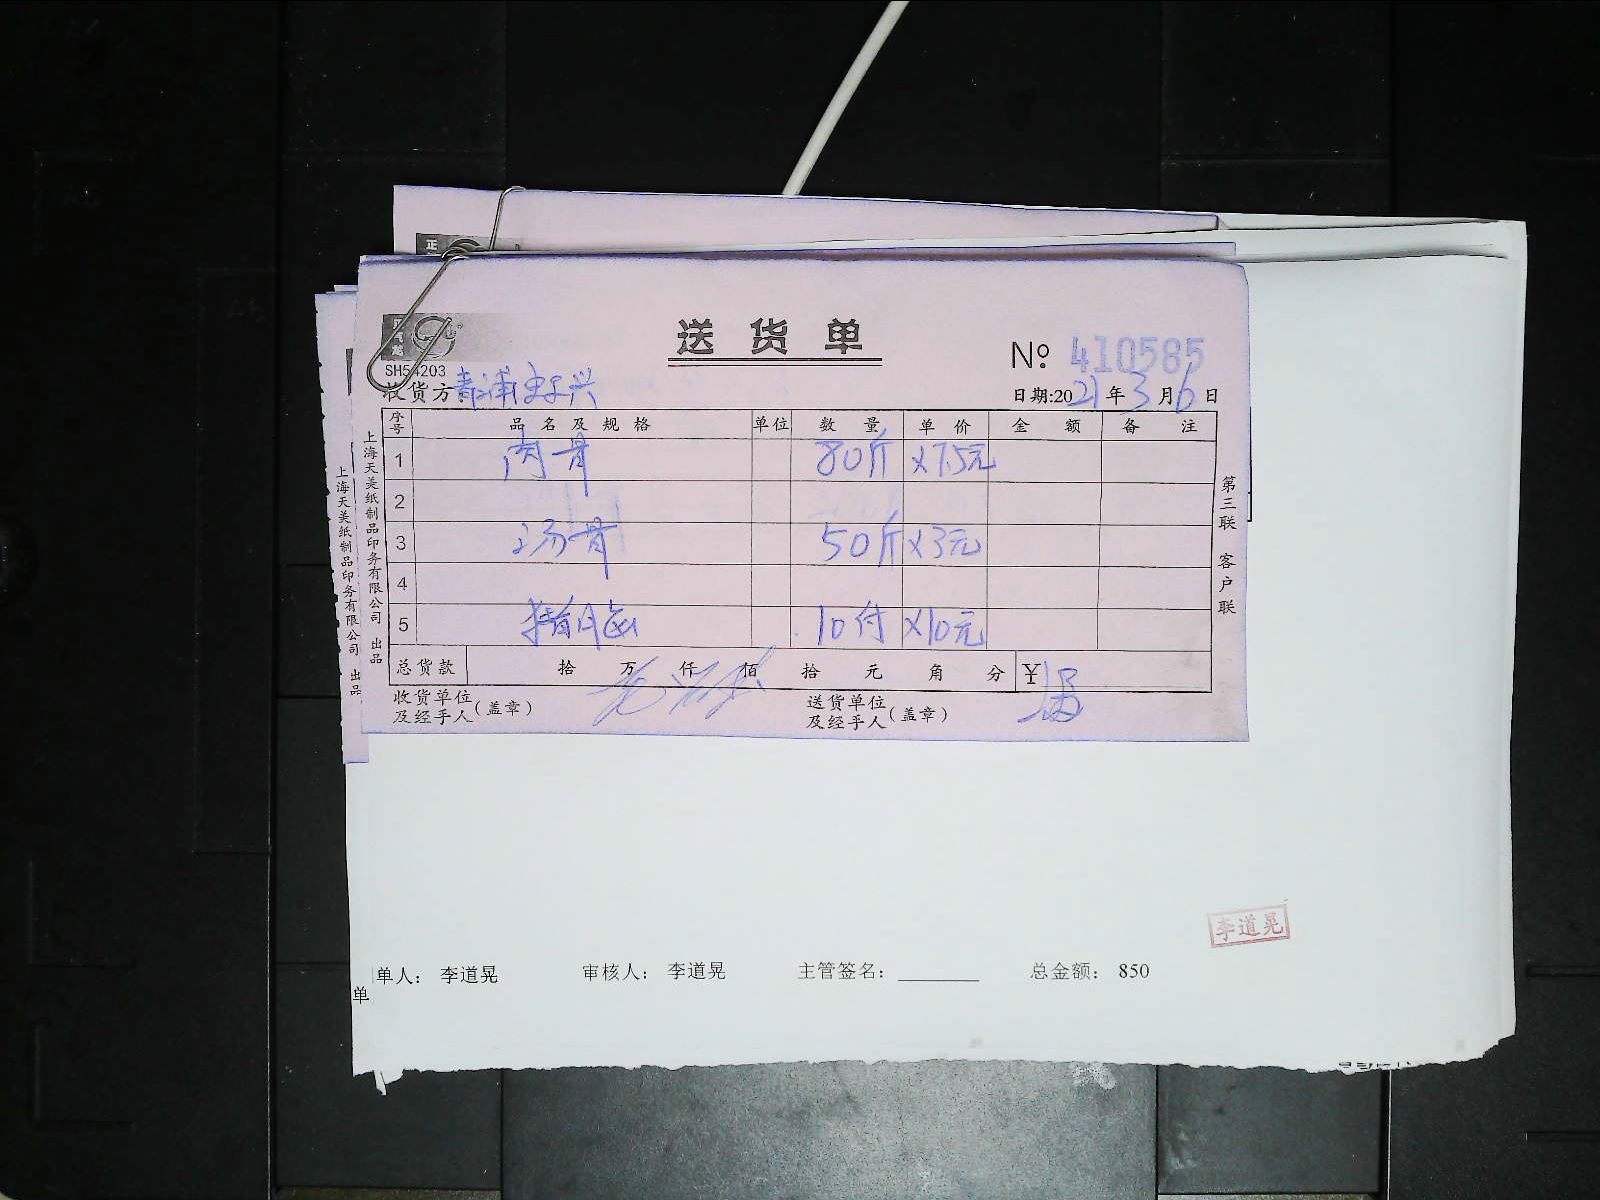 送货单
№ 410585
SH54203
收货方:青浦史子兴
日期:2021年3月6日
序号 品名及规格 单位 数量 单价 金额 备注
1 肉骨 80斤 ×7.5元
2
3 汤骨 50斤 ×3元
4
5 10付 ×10元
总货款 拾 万 仟 佰 拾 元 角 分 ¥
收货单位及经手人(盖章)
送货单位及经手人(盖章)
第三联 客户联
上海天美纸制品印务有限公司 出品
上海天美纸制品印务有限公司 出品
李道晃
单人: 李道晃 审核人: 李道晃 主管签名: 总金额: 850
单